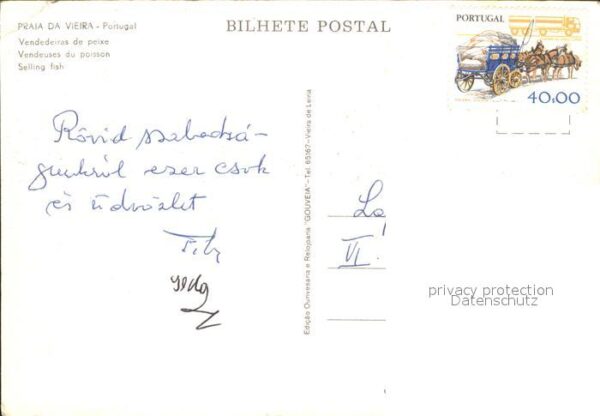 PRAIA DA VIEIRA - Portugal
Vendedeiras de peixe
Vendeuses du poisson
Selling fish
BILHETE POSTAL
PORTUGAL
40.00
Rövid szabadsá-
gunkról ezer csók
és üdvözlet
Edição Ourivesaria e Relojoaria "GOUVEIA" - Tel. 65167 - Vieira de Leiria
VI.
privacy protection
Datenschutz